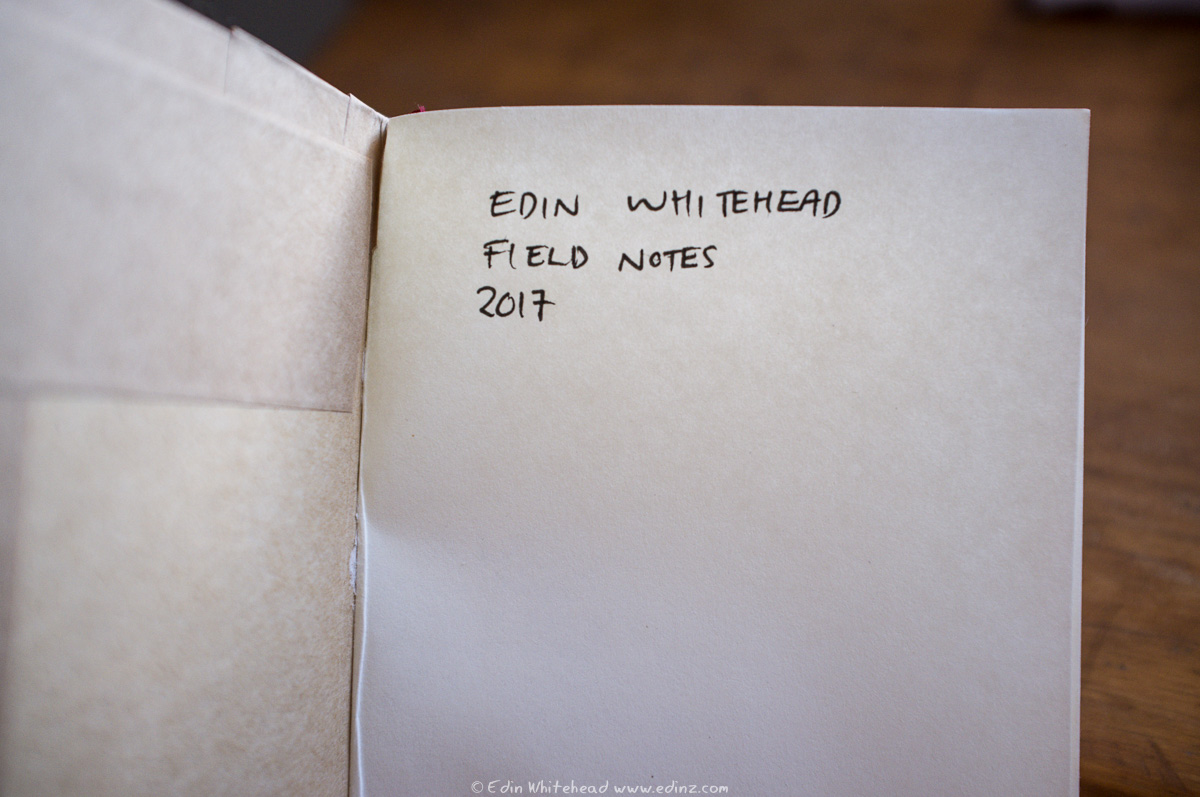 EDIN WHITEHEAD
FIELD NOTES
2017
© Edin Whitehead www.edinz.com